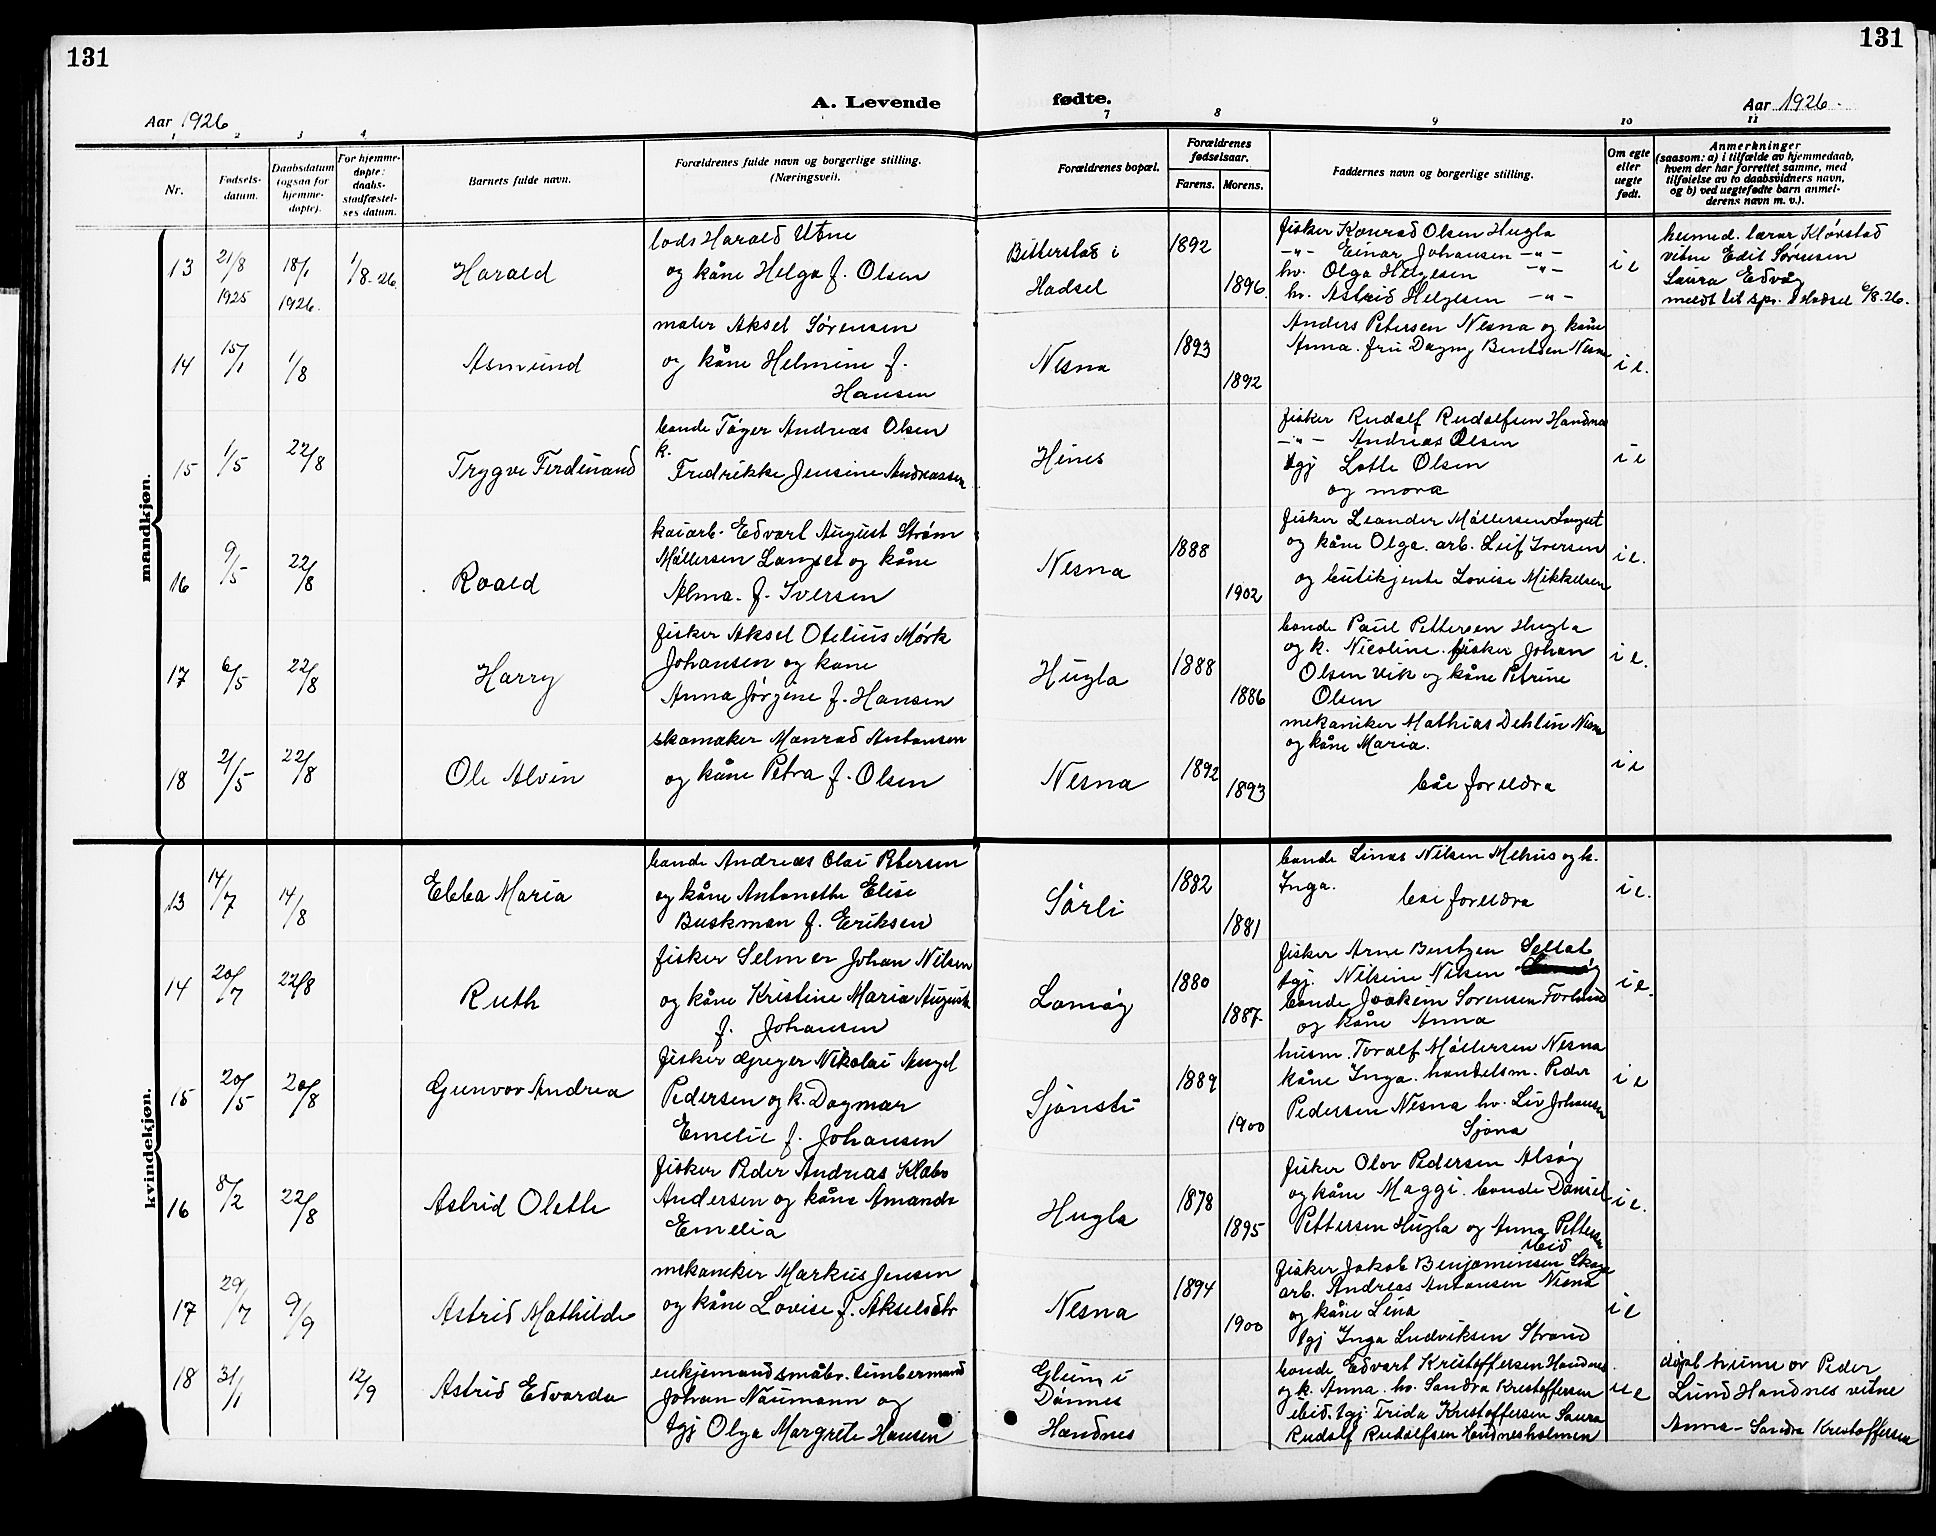 131
131
A. Levende fødte.
Aar 1926
Aar 1926.
1 2 3 4 7 8 9 10 11
Nr.
Fødselsdatum.
Daabsdatum (ogsaa for hjemmedøpte).
For hjemmedøpte: daabsstadfæstelses datum.
Barnets fulde navn.
Forældrenes fulde navn og borgerlige stilling. (Næringsvei).
Forældrenes bopæl.
Forældrenes fødselsaar.
Farens. Morens.
Faddernes navn og borgerlige stilling.
Om egte eller uegte født.
Anmerkninger (saasom: a) i tilfælde av hjemmedaab, hvem der har forrettet samme, med tilføielse av to daabsvidners navn, og b) ved uegtefødte barn anmelderens navn m. v.).
mandkjøn.
13 21/8 1925 18/1 1926. 1/8-26 Harald
lods Harald Utne
og kåne Helga f. Olsen
Bitterstad i
Hadsel
1892 1896.
fisker Konrad Olsen Hugla
-"- Einar Johansen -"-
hv. Olga Helgesen -"-
hv. Astrid Helgesen -"-
i e
heimed. lærar Kløvstad
vitne Edit Sørensen
Laura Edvåg
meldt til spr. i Hadsel 6/8.26.
14 15/1 1/8 Asmund
maler Aksel Sørensen
og kåne Helmine f.
Hansen
Nesna
1893 1892
Anders Petersen Nesna og kåne
Anna. fru Dagny Bentsen Nesna
i e.
15 1/5 22/8 Trygve Ferdinand
bonde Tøger Andreas Olsen
k.
Fredrikke Jensine Andreassen
Hines
fisker Rudolf Rudolfsen Handnes
-"- Andreas Olsen
tgj Lotte Olsen
og mora
i e
16 9/5 22/8 Roald
kaiarb. Edvart August Strøm
Møllersen Langset og kåne
Alma. f. Iversen
Nesna
1888 1902
fisker Leander Møllersen Langset
og kåne Olga. arb. Leif Iversen
og butikjente Lovise Mikkelsen
i e.
17 6/5 22/8 Harry
fisker Aksel Otelius Mørk
Johansen og kane
Anna Jørgine f. Hansen
Hugla
1888 1886
bonde Paul Pettersen Hugla
og k. Nicoline. fisker Johan
Olsen Vik og kåne Petrine
Olsen
i e.
18 21/5 22/8 Ole Alvin
skomaker Monrad Antonsen
og kåne Petra f. Olsen
Nesna
1892 1893
mekaniker Mathias Dehlin Nesna
og kåne Maria.
båe foreldra
i e
kvindekjøn.
13 14/7 14/8 Ebba Maria
bonde Andreas Olai Petersen
og kåne Antonette Elise
Buskman f. Eriksen
Sørli
1882 1881
bonde Linas Nilsen Mehus og k.
Inga.
båe foreldra
i e.
14 20/7 22/8 Ruth
fisker Selmer Johan Nilsen
og kåne Kristine Maria Auguste
f. Johansen
Lamøy
1880 1887.
fisker Arne Bentzen
tgj. Nilsine Nilsen
bonde Joakim Sørensen Forlund
og kåne Anna
i e.
15 20/5 20/8 Gunvor Andrea
fisker Greger Nikolai Angel
Pedersen og k. Dagmar
Emelie f. Johansen
Sjonsti
1889 1900
husm. Toralf Møllersen Nesna
kåne Inga. handelsm. Peder
Pedersen Nesna hv. Liv Johansen
Sjona
i e
16 8/2 22/8 Astrid Olette
fisker Peder Andreas Klabo
Andersen og kåne Amanda
Emelia
Hugla
1878 1895
fisker Olov Pedersen Alsøy
og kåne Maggi. bonde Daniel
Pettersen Hugla og Anna Pettersen
ibid
i e.
17 29/7 9/9 Astrid Mathilde
mekaniker Markus Jensen
og kåne Lovise f. Akselsdtr
Nesna
1894 1900
fisker Jakob Benjaminsen Skage
arb. Andreas Antonsen Nesna
og kåne Lina
tgj Inga Ludviksen Strand
i e
18 31/1 12/9 Astrid Edvarda
enkjemand småbr. timbermand
Johan Naumann og
tgj Olga Margrete Hansen
Glein i
Dønnes
Handnes
bonde Edvart Kristoffersen Handnes.
og k. Anna. hv. Sandra Kristoffersen
ibid. tgj Frida Kristoffersen Saura
Rudolf Rudolfsen Handnesholmen
u e
døpt heime av Peder
Lund Handnes vitne
Anna - Sandra Kristoffersen